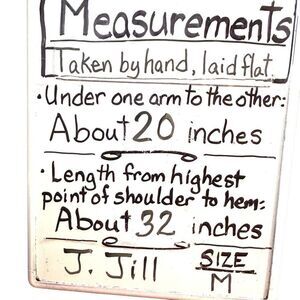 Measurements
Taken by hand, laid flat.
• Under one arm to the other:
About 20 inches
• Length from highest
point of shoulder to hem:
About 32 inches
J. Jill SIZE
M